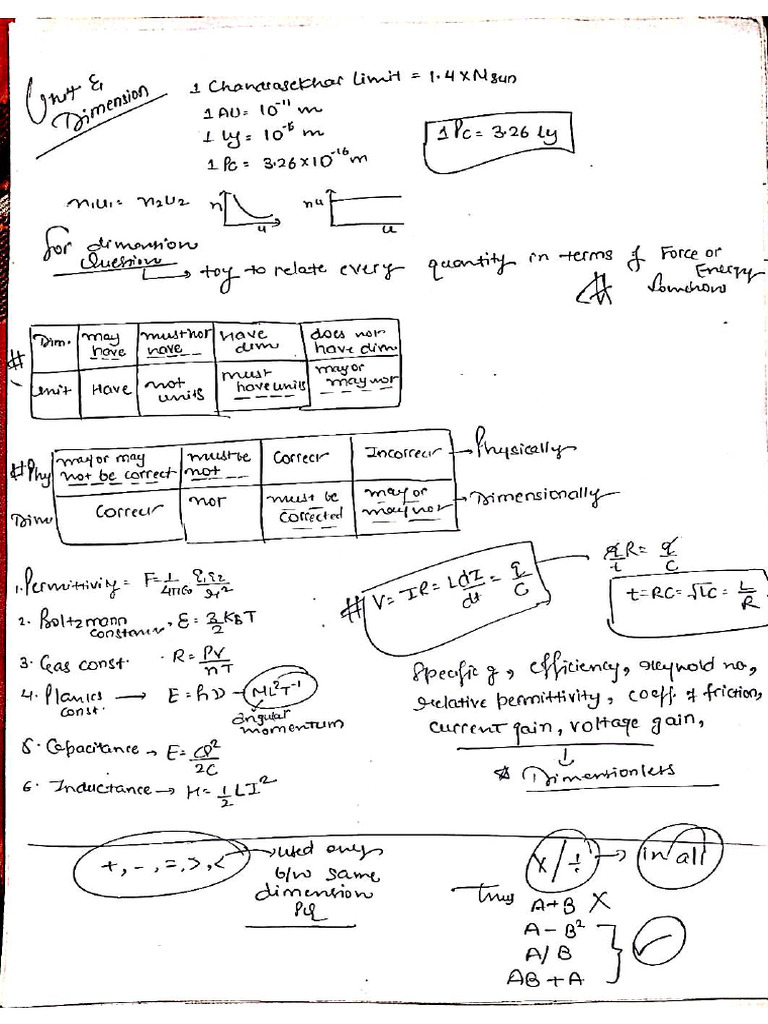 Unit &
Dimension
1 Chandrasekhar Limit = 1.4 x Msun
1 AU = 10⁻¹¹ m
1 ly = 10⁻¹⁵ m
1 Pc = 3.26 x 10⁻¹⁶ m
1 Pc = 3.26 ly
n₁u₁ = n₂u₂
n
u
nu
u
for dimension
Question
→ try to relate every quantity in terms of Force or
Energy
# Somehow
#
Dim. | may have | must not have | have dim | does not have dim
Unit | Have | not units | must have units | may or may not
# Phy | may or may not be correct | must be not | Correct | Incorrect → Physically
Dim | Correct | not | must be corrected | may or may not → Dimensionally
1. Permittivity = F = 1/4πε₀ q₁q₂/r²
2. Boltzmann constant, E = 3/2 K_BT
3. Gas const. · R = PV/nT
4. Planks const. → E = hν → ML²T⁻¹
angular
momentum
5. Capacitance → E = Q²/2C
6. Inductance → H = 1/2 LI²
# V = IR = L dI/dt = q/C
q/t R = q/C
t = RC = √LC = L/R
Specific g, efficiency, reynold no,
relative permittivity, coeff. of friction,
current gain, voltage gain,
↓
* Dimensionless
+, -, =, >, < → used only
b/w same
dimension
P.Q
x/÷ → in all
Thus A+B X
A - B²
A/B
AB + A
✓